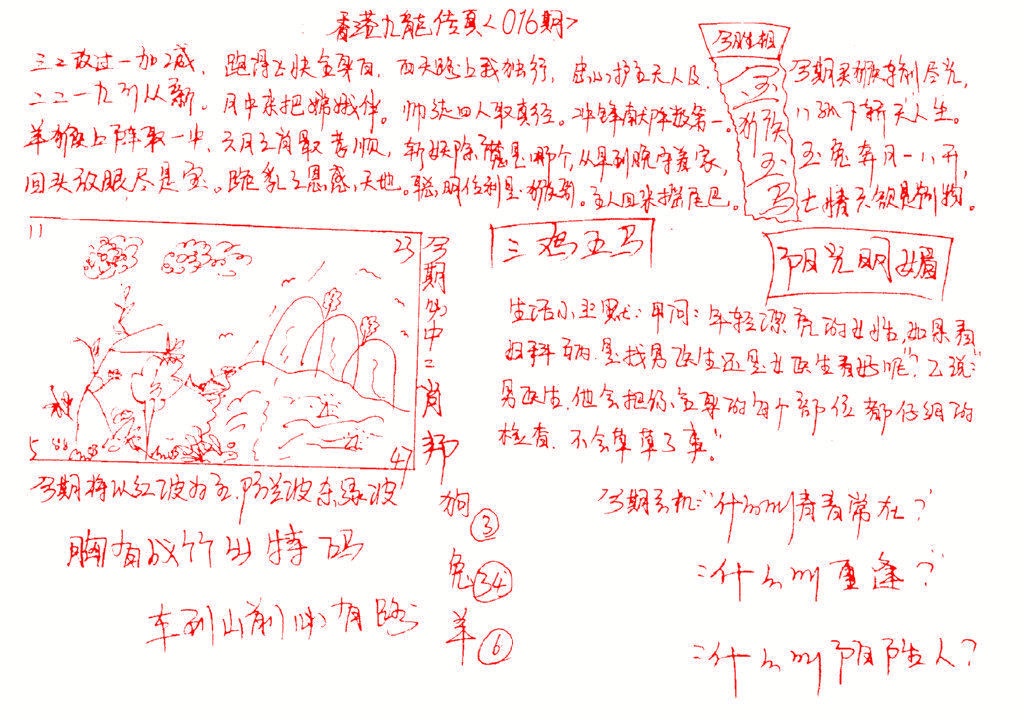 香港九龙传真<016期>
三二改过一加减，跑得飞快全身白，西天路上我独行，忠心护主天人及，
二二一九可从新。月中亲把嫦娥伴。师徒四人取真经。冲锋献阵数第一。
羊猴上阵取一中，六月三肖最孝顺，斩妖除魔是哪个，从早到晚守着家，
回头放眼尽是宝。跪乳之恩感天地。聪明伶俐是猴哥。主人回来摇尾巴。
今期
金
猴
玉
马
八 下轿夫人生。
玉兔奔月一八开，
七情六欲是别物。
11
23
5
47
今期必中三肖
狗③
兔34
羊⑥
三鸡五马
阳光明媚
生活小幽默：甲问：年轻漂亮的女性，如果看
妇科病，是找男医生还是女医生看好呢？乙说："
男医生，他会把你全身的每个部位都仔细的
检查，不会草草了事。"
今期将以红波为主，防兰波杀绿波
胸有成竹出特码
车到山前必有路
今期玄机："什么叫青春常在？
：什么叫重逢？
：什么叫阴阳人？